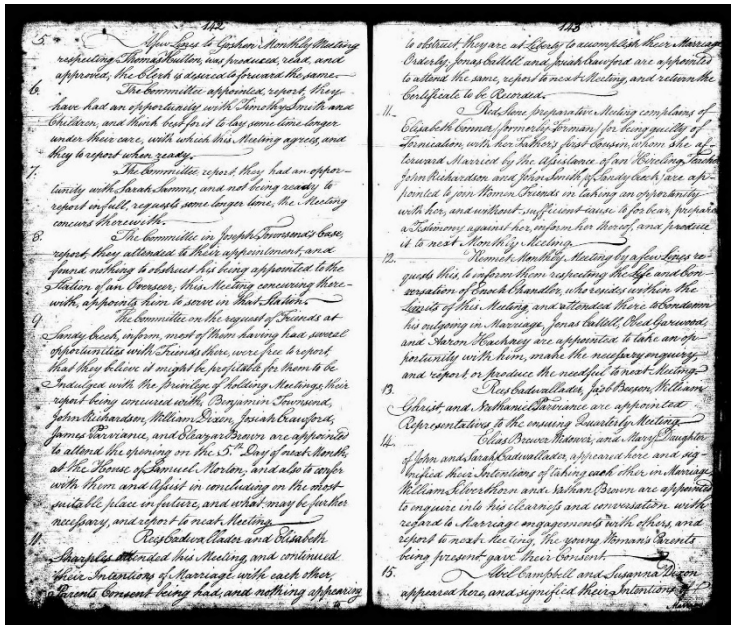 142
5. A few Lines to Goshen Monthly Meeting
respecting Thomas Hutton, was produced, read, and
approved, the Clerk is desired to forward the same.
6. The Committee appointed, report, they
have had an opportunity with Timothy Smith and
Children, and think best for it to lay some time longer
under their care, with which this Meeting agrees, and
they to report when ready.
7. The Committee, report, they had an oppor-
tunity with Sarah Samms, and not being ready to
report in full, requests some longer time, the Meeting
concurs therewith.
8. The Committee in Joseph Townsend's Case,
report, they attended to their appointment, and
found nothing to obstruct his being appointed to the
Station of an Overseer; this Meeting concuring there-
with, appoints him to serve in that Station.
9 The Committee on the request of Friends at
Sandy Creek, inform, most of them having had several
opportunities with Friends there, were free to report,
that they believe it might be profitable for them to be
Indulged with the privilege of holding Meetings, their
report being concured with, Benjamin Townsend,
John Richardson, William Dixon, Josiah Crawford,
James Purviance, and Eleazar Brown are appointed
to attend the opening on the 5th Day of next Month,
at the House of Samuel Morton, and also to confer
with them and Assist in concluding on the most
suitable place in future, and what may be further
necessary, and report to next Meeting
10. Rees Cadwallader and Elisabeth
Sharples attended this Meeting, and continued
their Intentions of Marriage with each other,
Parents Consent being had, and nothing appearing
143
to obstruct, they are at Liberty to accomplish their Marriage
Orderly; Jonas Cattell and Josiah Crawford are appointed
to attend the same, report to next Meeting, and return the
Certificate to be Recorded.
11. Red Stone preparative Meeting complains of
Elisabeth Conner (formerly Forman) for being guilty of
fornication, with her father's first Cousin, whom she af-
terward Married by the Assistance of an Hireling Teacher
John Richardson and John Smith of Sandy Creek are ap-
pointed to join Women Friends in taking an opportunity
with her, and without sufficient cause to forbear, prepare
a Testimony against her, inform her thereof, and produce
it to next Monthly Meeting.
12. Kennet Monthly Meeting by a few Lines re
quests this, to inform them respecting the Life and Con
versation of Enoch Chandler, who resides within the
Limits of this Meeting, and attended there to Condemn
his outgoing in Marriage, Jonas Cattell, Obed Garwood,
and Aaron Hackney are appointed to take an op-
portunity with him, make the necessary enquiry,
and report or produce the needful to next Meeting
13. Rees Cadwallader, Jacob Beeson, William
Ghrist, and Nathaniel Purviance are appointed
Representatives to the ensuing Quarterly Meeting.
14. Elias Brewer Widower, and Mary, Daughter
of John and Sarah Cadwallader, appeared here and sig-
nified their Intentions of taking each other in Marriage,
William Silverthorn and Nathan Brown are appointed
to enquire into his clearness and conversation with
regard to Marriage engagements with others, and
report to next Meeting, the young Woman's Parents
being present gave their Consent.
15. Abel Campbell and Susanna Dixon
appeared here, and signified their Intentions of
Marriage